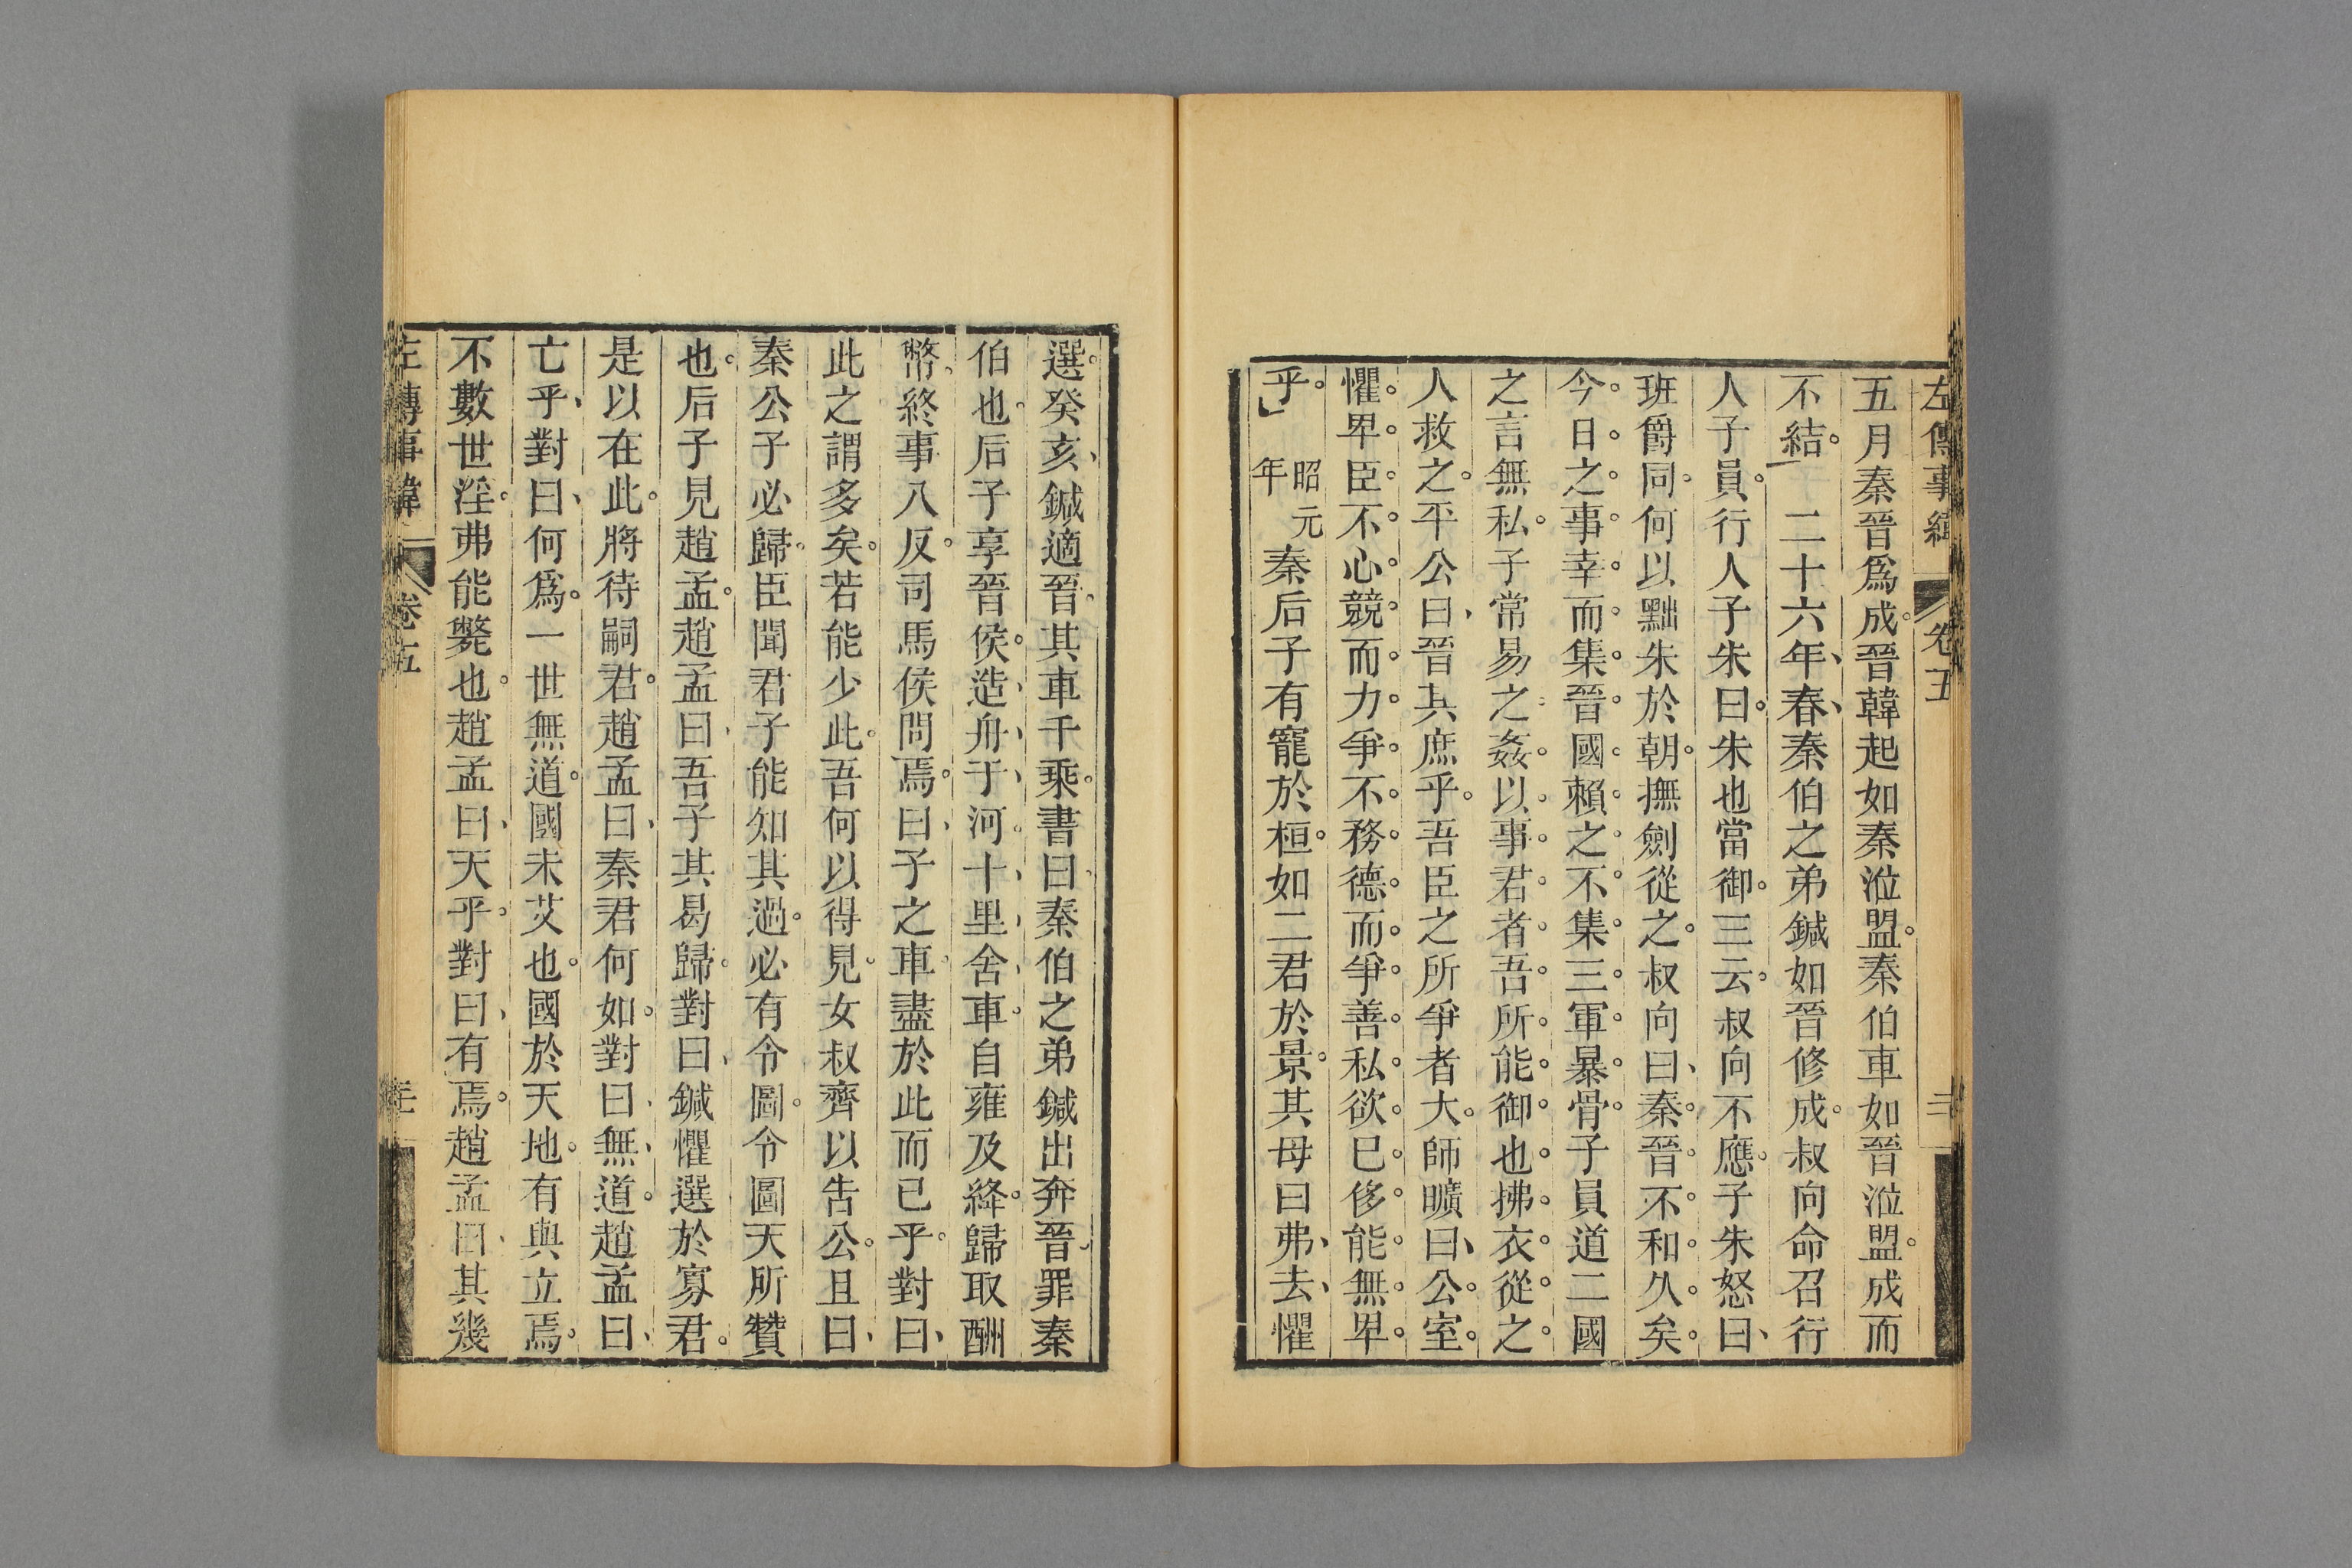 左傳事緯 卷五 二
五月秦晉爲成。晉韓起如秦涖盟。秦伯車如晉涖盟。成而
不結。二十六年、春、秦伯之弟鍼如晉修成。叔向命召行
人子員。行人子朱曰。朱也當御。三云。叔向不應。子朱怒曰、
班爵同。何以黜朱於朝。撫劍從之。叔向曰、秦。晉。不。和。久。矣。
今。日。之。事。幸。而。集。晉。國。賴。之。不。集。三。軍。暴。骨。子員道二國
之言無私。子常易之。姦。以。事。君。者。吾。所。能。御。也。拂。衣。從。之。
人救之。平公曰、晉其庶乎。吾臣之所爭者大。師曠曰、公。室。
懼。卑。臣。不。心。競。而。力。爭。不。務。德。而。爭。善。私。欲。已。侈。能。無。卑。
乎。」昭元年秦后子有寵於桓。如二君於景。其母曰弗、去、懼
選。癸亥、鍼適晉、其車千乘。書曰、秦伯之弟鍼出奔晉、罪秦
伯也。后子享晉侯。造、舟、于、河。十、里、舍、車。自雍及絳。歸取酬
幣、終事八反。司馬侯問焉。曰、子之車、盡於此而已乎。對曰、
此之謂多矣。若能少此。吾何以得見。女叔齊以告公。且曰、
秦公子必歸。臣聞君子能知其過。必有令圖。令圖天所贊
也。后子見趙孟。趙孟曰、吾子其曷歸。對曰、鍼懼選於寡君。
是以在此。將待嗣君。趙孟曰、秦君何如。對曰、無、道。趙孟曰、
亡乎、對曰、何爲。一世無道。國未艾也。國於天地。有與立焉。
不數世淫。弗能斃也。趙孟曰、天乎。對曰、有焉。趙孟曰、其幾
左傳事緯 卷五